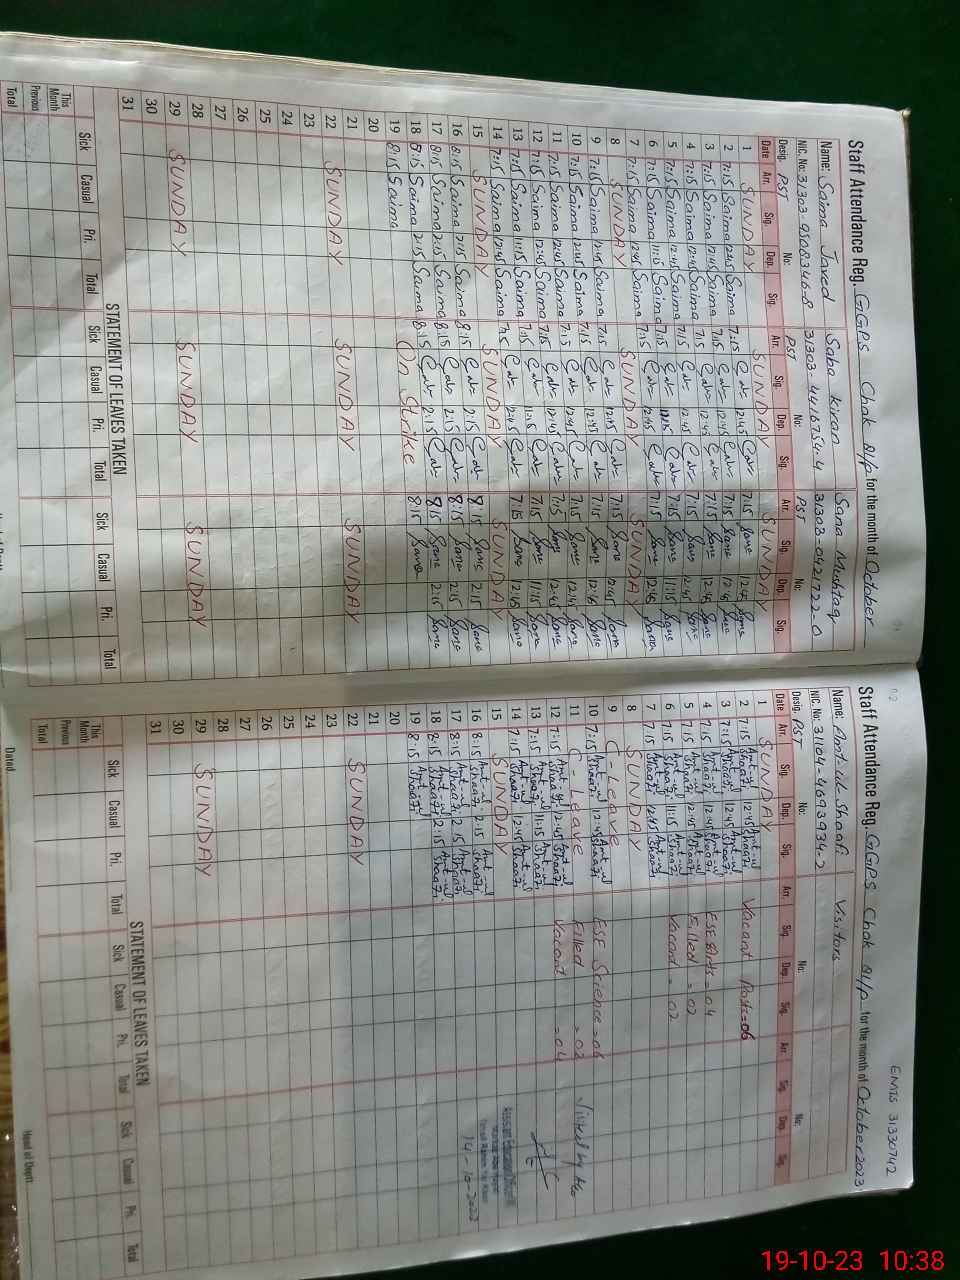 Staff Attendance Reg. GGPS Chak 21/P for the month of October
Name: Saima Javed Saba Kiran Sana Mushtaq
NIC. No: 31303-9508346-8 31303-4416754-4 31303-0421722-0
Desig. PST No: PST No: PST No:
Date Arr. Sig. Dep. Sig. Arr. Sig. Dep. Sig. Arr. Sig. Dep. Sig.
1 SUNDAY SUNDAY SUNDAY
2 7:15 Saima 12:45 Saima 7:15 12:45 7:15 Sana 12:45 Sana
3 7:15 Saima 12:45 Saima 7:15 12:45 7:15 Sana 12:45 Sana
4 7:15 Saima 12:45 Saima 7:15 12:45 7:15 Sana 12:45 Sana
5 7:15 Saima 12:45 Saima 7:15 12:45 7:15 Sana 12:45 Sana
6 7:15 Saima 11:15 Saima 7:15 11:15 7:15 Sana 11:15 Sana
7 7:15 Saima 12:45 Saima 7:15 12:45 7:15 Sana 12:45 Sana
8 SUNDAY SUNDAY SUNDAY
9 7:15 Saima 12:45 Saima 7:15 12:45 7:15 Sana 12:45 Sana
10 7:15 Saima 12:45 Saima 7:15 12:45 7:15 Sana 12:45 Sana
11 7:15 Saima 12:45 Saima 7:15 12:45 7:15 Sana 12:45 Sana
12 7:15 Saima 12:45 Saima 7:15 12:45 7:15 Sana 12:45 Sana
13 7:15 Saima 11:15 Saima 7:15 11:15 7:15 Sana 11:15 Sana
14 7:15 Saima 12:45 Saima 7:15 12:45 7:15 Sana 12:45 Sana
15 SUNDAY SUNDAY SUNDAY
16 8:15 Saima 2:15 Saima 8:15 2:15 8:15 Sana 2:15 Sana
17 8:15 Saima 2:15 Saima 8:15 2:15 8:15 Sana 2:15 Sana
18 8:15 Saima 2:15 Saima 8:15 2:15 8:15 Sana 2:15 Sana
19 8:15 Saima On Strike 8:15 Sana
20
21
22 SUNDAY SUNDAY SUNDAY
23
24
25
26
27
28
29 SUNDAY SUNDAY SUNDAY
30
31
STATEMENT OF LEAVES TAKEN
Sick Casual Pri. Total Sick Casual Pri. Total Sick Casual Pri. Total
This Month
Previous
Total
Staff Attendance Reg. GGPS Chak 21/P for the month of October 2023
EMIS 31330742
Name: Amt-ul-Shaafi Visitors
NIC. No: 31104-4693934-2
Desig. PST No: No: No:
Date Arr. Sig. Dep. Sig. Arr. Sig. Dep. Sig. Arr. Sig. Dep. Sig.
1 SUNDAY
2 7:15 Amt-ul Shaafi 12:45 Amt-ul Shaafi Vacant Posts=06
3 7:15 Amt-ul Shaafi 12:45 Amt-ul Shaafi
4 7:15 Amt-ul Shaafi 12:45 Amt-ul Shaafi ESE Arts = 04
5 7:15 Amt-ul Shaafi 12:45 Amt-ul Shaafi Filled = 02
6 7:15 Amt-ul Shaafi 11:15 Amt-ul Shaafi Vacant = 02
7 7:15 Amt-ul Shaafi 12:45 Amt-ul Shaafi
8 SUNDAY
9 C-Leave
10 7:15 Amt-ul Shaafi 12:45 Amt-ul Shaafi ESE Science = 06
11 C-Leave Filled = 02
12 7:15 Amt-ul Shaafi 12:45 Amt-ul Shaafi Vacant = 04
13 7:15 Amt-ul Shaafi 11:15 Amt-ul Shaafi
14 7:15 Amt-ul Shaafi 12:45 Amt-ul Shaafi
15 SUNDAY
16 8:15 Amt-ul Shaafi 2:15 Amt-ul Shaafi
17 8:15 Amt-ul Shaafi 2:15 Amt-ul Shaafi
18 8:15 Amt-ul Shaafi 2:15 Amt-ul Shaafi
19 8:15 Amt-ul Shaafi
20
21
22 SUNDAY
23
24
25
26
27
28
29 SUNDAY
30
31
Visited by
Assistant Education Officer
14-10-2023
STATEMENT OF LEAVES TAKEN
Sick Casual Pri. Total Sick Casual Pri. Total Sick Casual Pri. Total
This Month
Previous
Total
Dated
Head of Deptt.
19-10-23 10:38